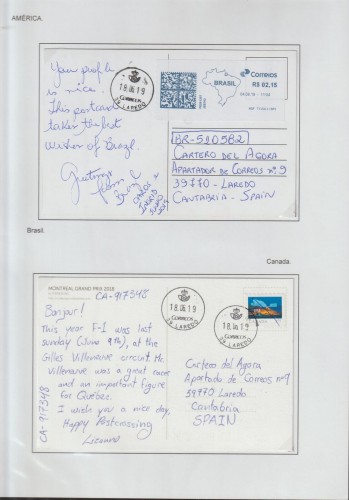 AMÉRICA.
Your profile
is nice.
This postcard
takes the best
wishes of Brazil.
Greetings
from
Brazil
CARLOS e
INGRID
18.06.19
CORREOS
LAREDO
Correios
BRASIL
R$ 02,15
BR-510582
CARTERO DEL AGORA
APARTADOR DE CORREOS Nº 9
39770 - LAREDO
CANTABRIA - SPAIN
Brasil.
Canada.
MONTREAL GRAND PRIX 2018
CA-917348
Bonjour!
This year F-1 was last
sunday (June 9th), at the
Gilles Villeneuve circuit. Mr.
Villeneuve was a great racer
and an important figure
for Québec.
I wish you a nice day,
Happy Postcrossing
CA-917348
18.06.19
CORREOS
LAREDO
18.06.19
CORREOS
LAREDO
Cartero del Agora
Apartado de Correos nº9
39770 Laredo
Cantabria
SPAIN